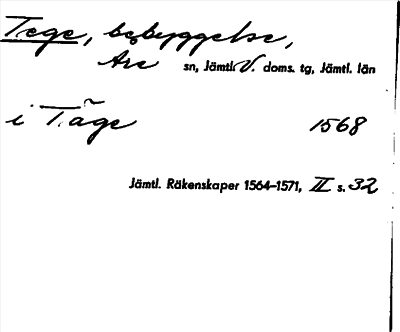 Tege, bebyggelse,
Åre sn, Jämtl. V. doms. tg, Jämtl. län
i Tãge 1568
Jämtl. Räkenskaper 1564–1571, II s. 32